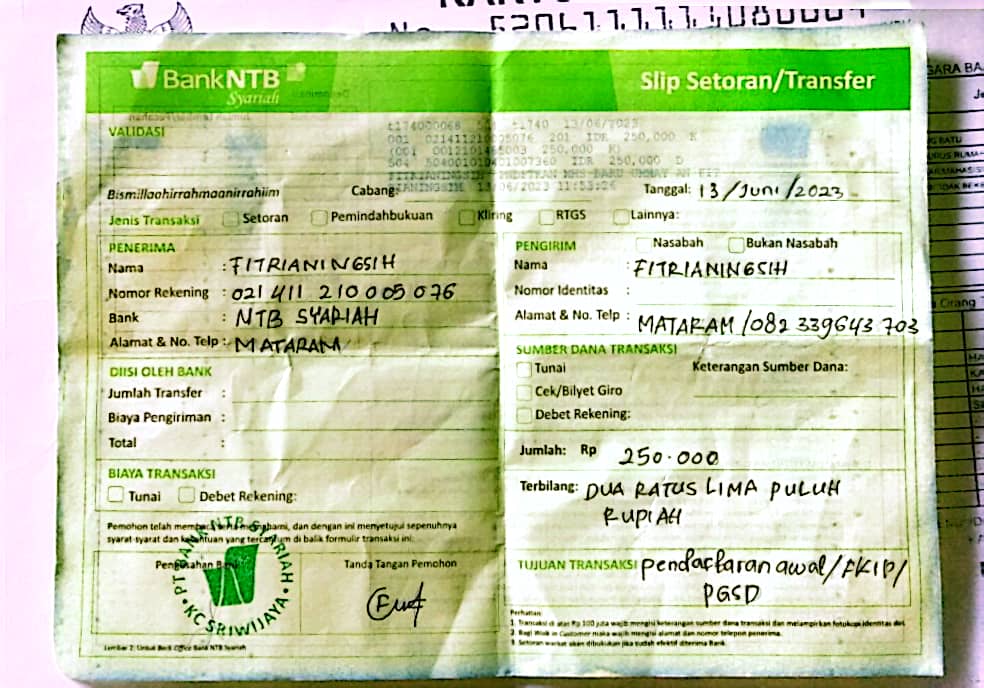 No. 5204111111080001
BankNTB
Syariah
Slip Setoran/Transfer
VALIDASI
13/06/2023
001 021411210005076 201 IDR 250,000 K
250,000 K)
IDR 250,000 D
13/06/2023 11:53:26
Bismillaahirrahmaanirrahiim
Cabang:
Tanggal: 13/Juni/2023
Jenis Transaksi Setoran Pemindahbukuan Kliring RTGS Lainnya:
PENERIMA
Nama : FITRIANINGSIH
Nomor Rekening : 021 411 210 005 076
Bank : NTB SYARIAH
Alamat & No. Telp : MATARAM
DIISI OLEH BANK
Jumlah Transfer :
Biaya Pengiriman :
Total :
BIAYA TRANSAKSI
Tunai Debet Rekening:
Pemohon telah membaca, memahami, dan dengan ini menyetujui sepenuhnya
syarat-syarat dan ketentuan yang tercantum di balik formulir transaksi ini.
Pengesahan Bank
Tanda Tangan Pemohon
PT BANK NTB SYARIAH
KC SRIWIJAYA
Lembar 2: Untuk Back Office Bank NTB Syariah
PENGIRIM Nasabah Bukan Nasabah
Nama : FITRIANINGSIH
Nomor Identitas :
Alamat & No. Telp : MATARAM/082 339643 703
SUMBER DANA TRANSAKSI
Tunai Keterangan Sumber Dana:
Cek/Bilyet Giro
Debet Rekening:
Jumlah: Rp 250.000
Terbilang: DUA RATUS LIMA PULUH
RUPIAH
TUJUAN TRANSAKSI pendaftaran awal/FKIP/
PGSD
Perhatian:
1. Transaksi di atas Rp 100 juta wajib mengisi keterangan sumber dana transaksi dan melampirkan fotokopi identitas diri.
2. Bagi Walk in Customer maka wajib mengisi alamat dan nomor telepon penerima.
3. Setoran warkat akan dibukukan jika sudah efektif diterima Bank.